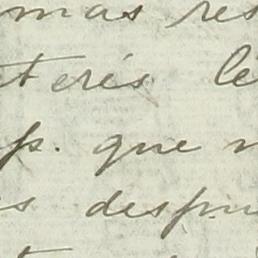 mas res
terés le
p. que n
s despu